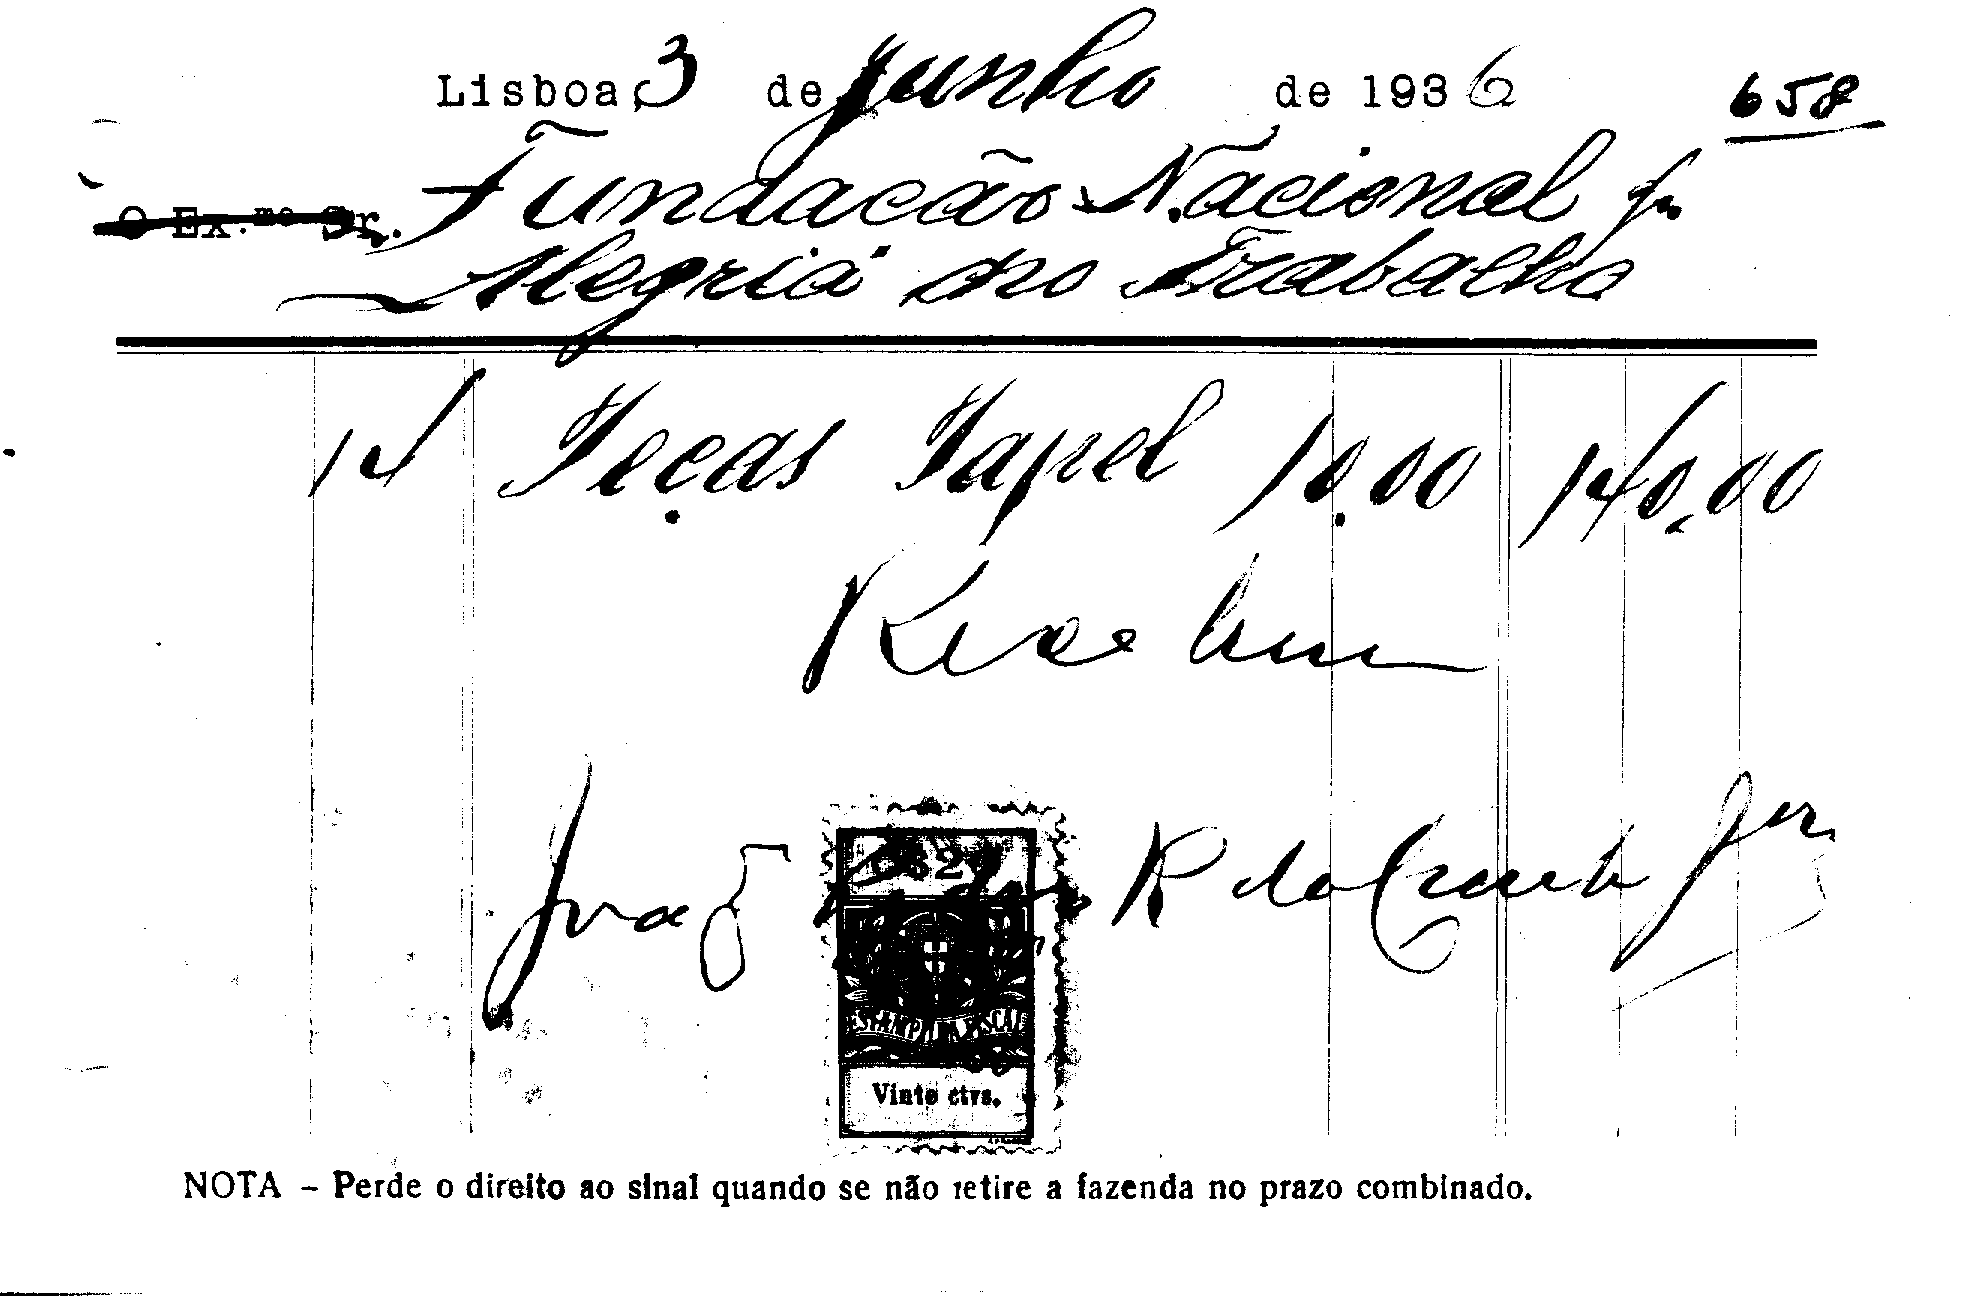 Lisboa, 3 de Junho de 1936
658
O Ex.mo Sr. Fundação Nacional pª
Alegria no Trabalho
14 Peças Papel 10.00 140,00
Recebemos
João R da Costa Jor
ESTAMPILHA FISCAL
Vinte ctvs.
NOTA - Perde o direito ao sinal quando se não retire a fazenda no prazo combinado.